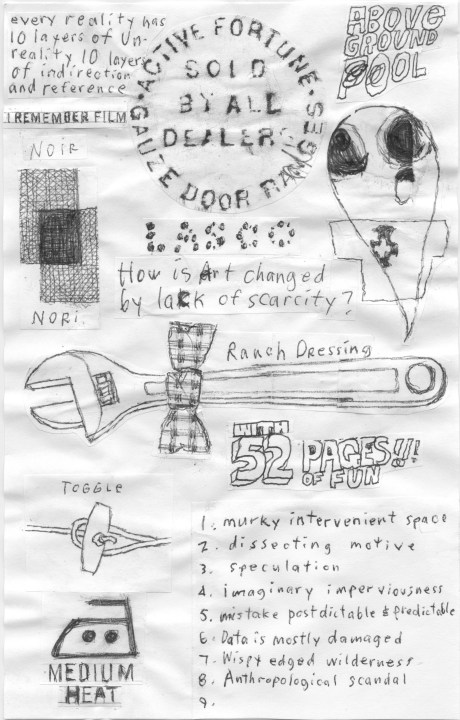 every reality has
10 layers of un-
reality, 10 layers
of indirection
and reference
I REMEMBER FILM
ACTIVE FORTUNE
GAUZE DOOR RANGES
SOLD
BY ALL
DEALERS
ABOVE
GROUND
POOL
NOIR
NORI
How is Art changed
by lack of scarcity?
Ranch Dressing
WITH
52 PAGES!!!
OF FUN
TOGGLE
MEDIUM
HEAT
1. murky intervenient space
2. dissecting motive
3. speculation
4. imaginary imperviousness
5. mistake postdictable & predictable
6. Data is mostly damaged
7. Wispy edged wilderness
8. Anthropological scandal
9.